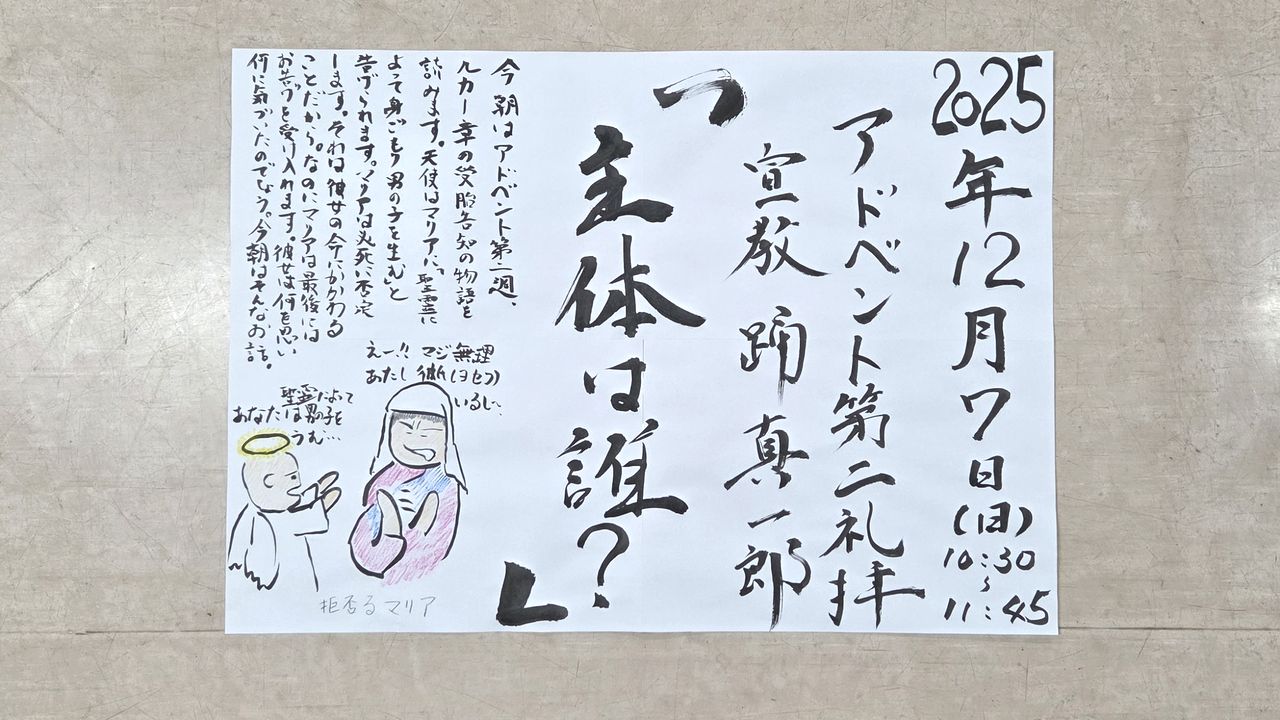 2025年12月7日(日)
10:30
〜
11:45
アドベント第二礼拝
宣教 踊 真一郎
「主体は誰?」
今朝はアドベント第二週、
ルカ一章の受胎告知の物語を
読みます。天使はマリアに、「聖霊に
よって身ごもり男の子を生む」と
告げられます。マリアは必死に否定
します。それは彼女の命にかかわる
ことだから。なのにマリアは最後には
お告げを受け入れます。彼女は何を思い
何に気づいたのでしょう。今朝はそんなお話。
えー!! マジ無理
あたし 彼氏(ヨセフ)
いるし、
聖霊によって
あなたは男の子を
うむ…
拒否るマリア